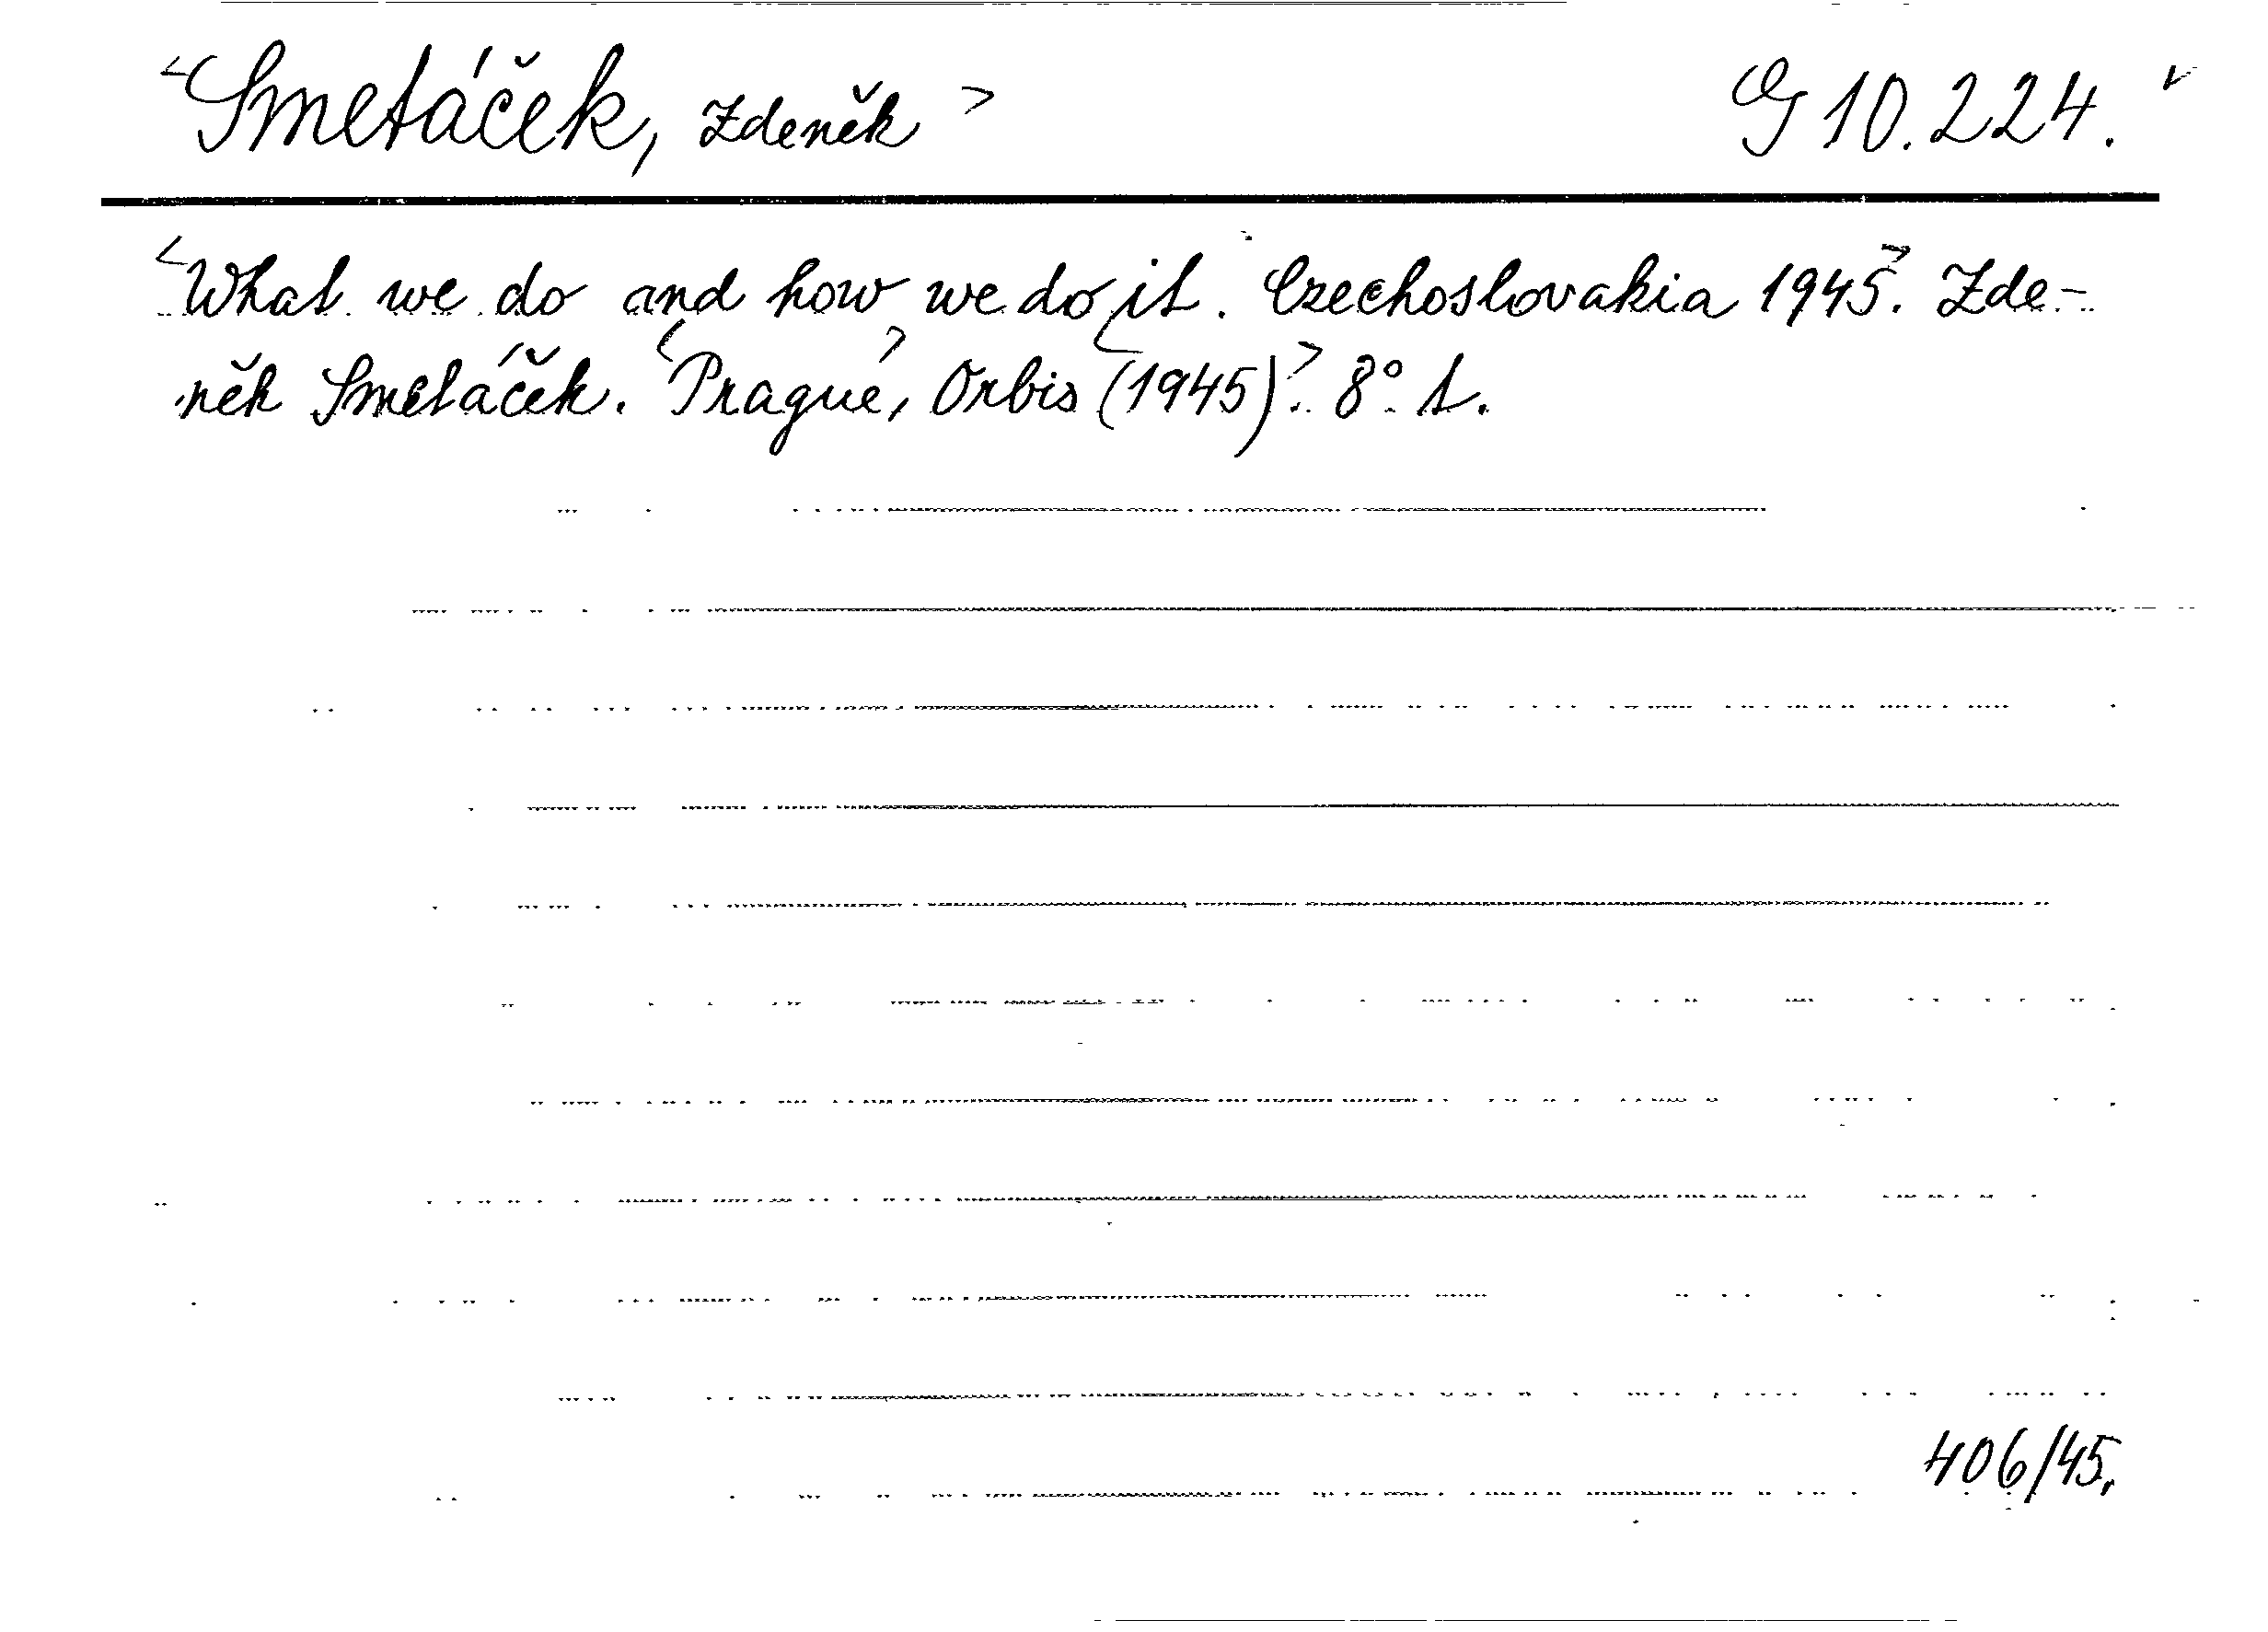 <Smetáček, Zdeněk> G 10.224.
<What we do and how we do it. Czechoslovakia 1945>. Zde-
něk Smetáček. <Prague>, Orbis <(1945)>. 8° s.
406/45.